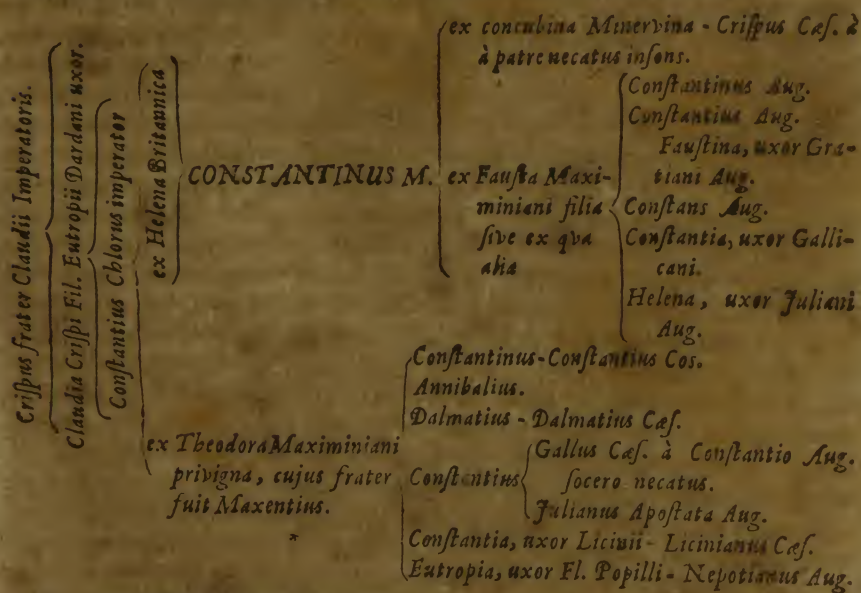 Crispus frater Claudii Imperatoris.
Claudia Crispi Fil. Eutropii Dardani uxor.
Constantius Chlorus imperator
ex Helena Britannica
CONSTANTINUS M.
ex concubina Minervina - Crispus Cæs. à
à patre necatus insons.
ex Fausta Maxi-
miniani filia
sive ex qva
alia
Constantinus Aug.
Constantius Aug.
Faustina, uxor Gra-
tiani Aug.
Constans Aug.
Constantia, uxor Galli-
cani.
Helena, uxor Juliani
Aug.
ex Theodora Maximiniani
privigna, cujus frater
fuit Maxentius.
*
Constantinus-Constantius Cos.
Annibalius.
Dalmatius - Dalmatius Cæs.
Constantius
Gallus Cæs. à Constantio Aug.
socero necatus.
Julianus Apostata Aug.
Constantia, uxor Licinii - Licinianus Cæs.
Eutropia, uxor Fl. Popilli - Nepotianus Aug.